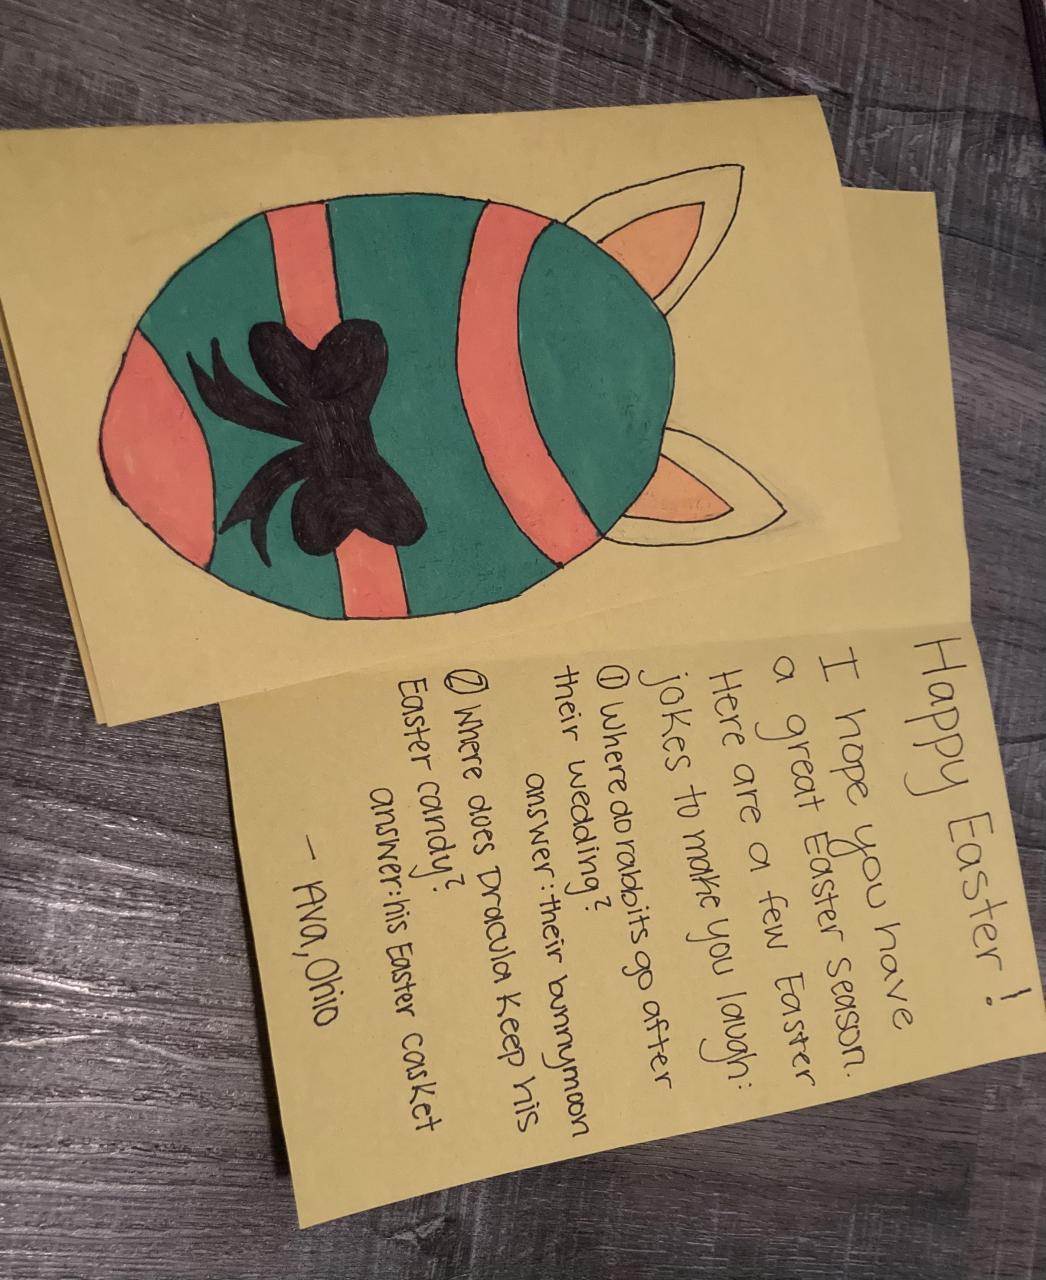 Happy Easter!
I hope you have
a great Easter season.
Here are a few Easter
jokes to make you laugh:
① Where do rabbits go after
their wedding?
answer: their bunnymoon
② Where does Dracula keep his
Easter candy?
answer: his Easter casket
- Ava, Ohio